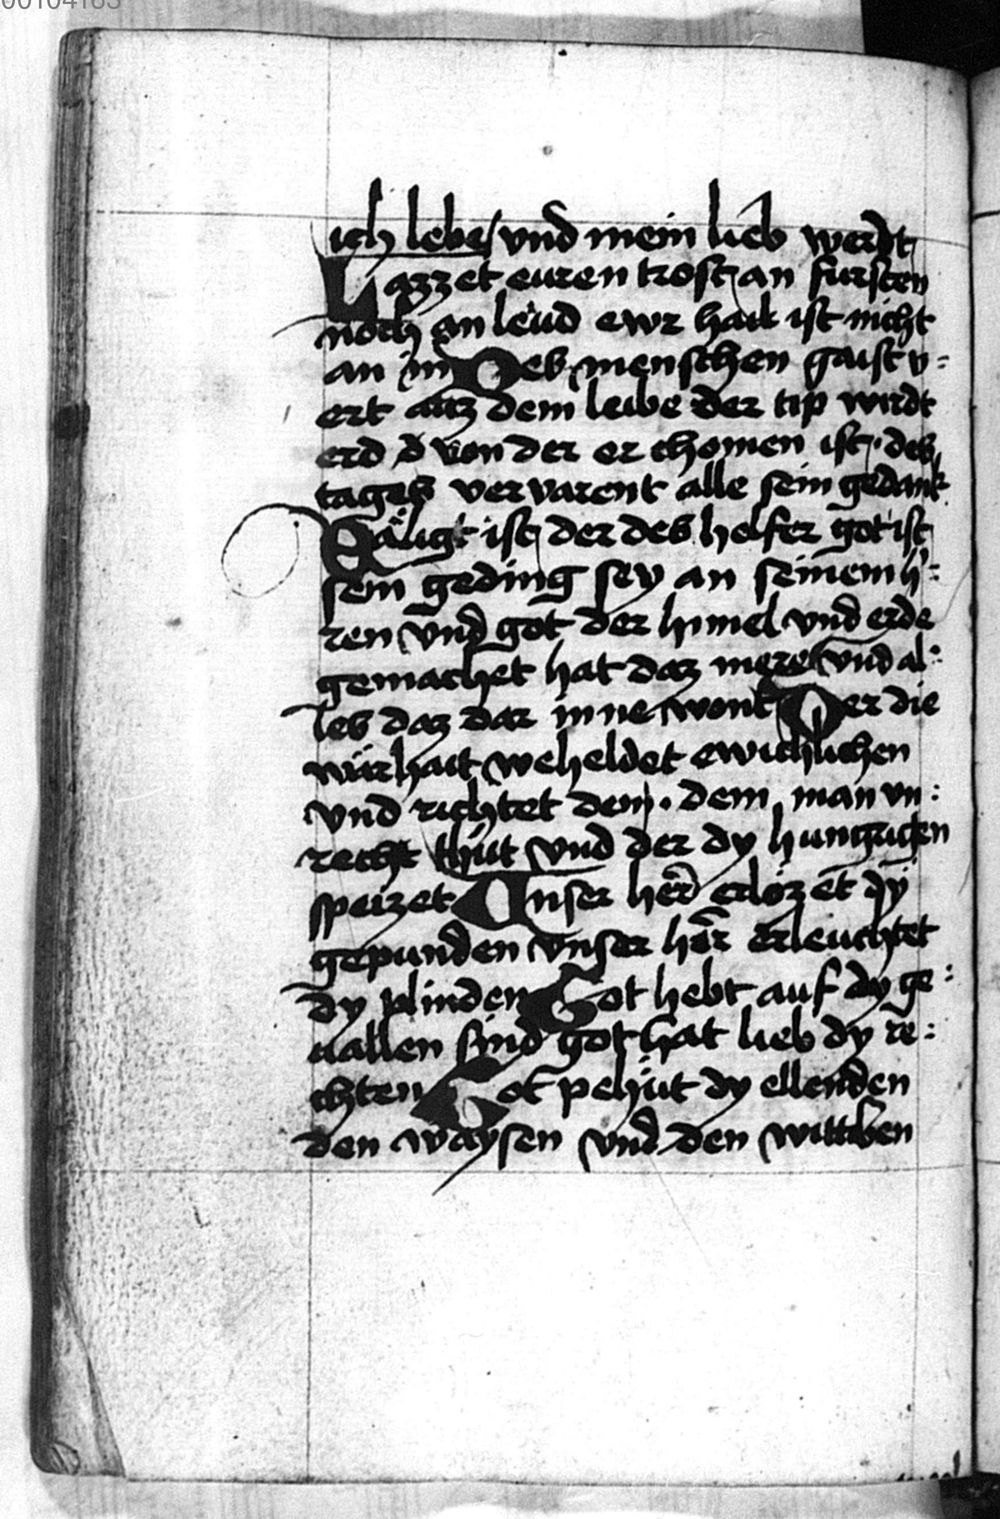 00104185
ich lebe vnd mein lieb werdt
Lazzet euren trost an fursten
noch an leud ewr hail ist nicht
an im Des menschen gaist v=
ert auz dem leibe der tip wirdt
erd d von der er chomen ist · des
tages vervarent alle sein gedank
Säligt ist der des helfer got ist
sein geding sey an seinem h=
ren vnd got der himel vnd erde
gemachet hat daz mere vnd al=
les daz dar inne wont Der die
warhait weheldet ewichlichen
vnd richtet dem · dem man vn=
recht thut vnd der dy hungrigen
speizet Vnser herr erlözet dy
gepunden vnser herr erleuchtet
dy plinden Got hebt auf dy ge=
uallen sind got hat lieb dy re=
chten Got pehüt dy ellenden
den waysen vnd den wittiben